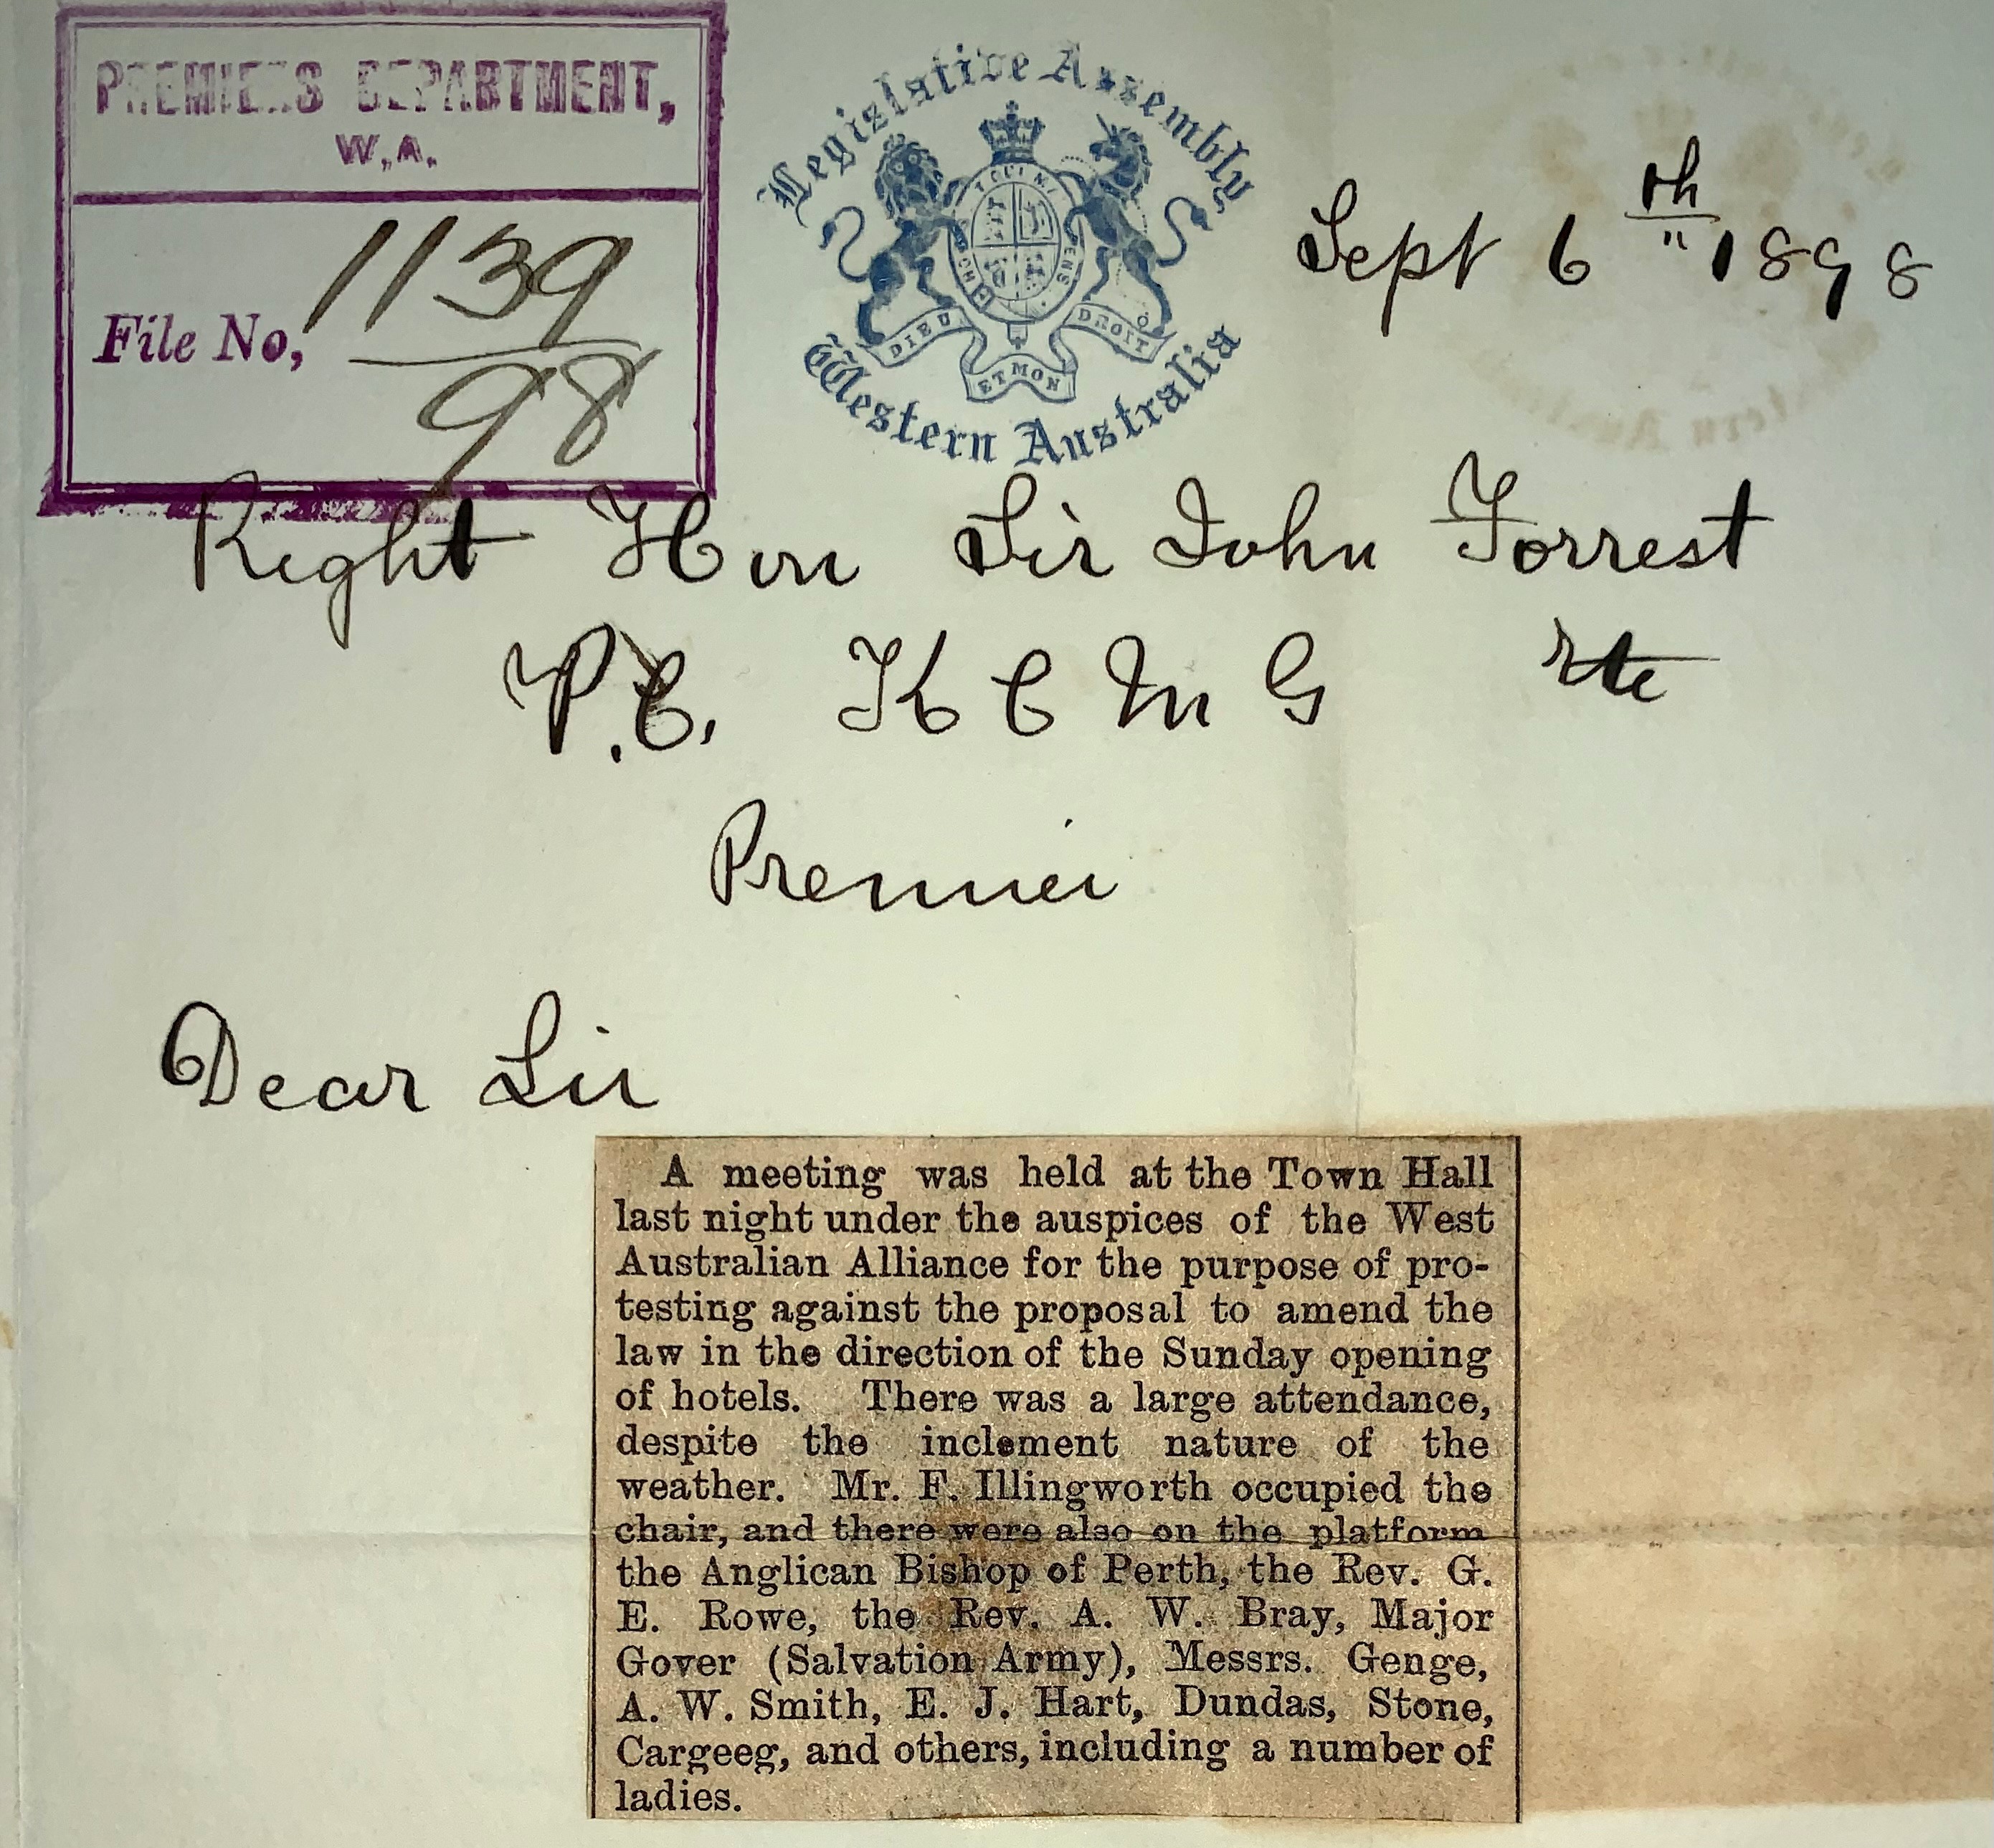 PREMIERS DEPARTMENT,
W.A.
File No, 1139
98
Legislative Assembly
DIEU ET MON DROIT
Western Australia
Sept 6th 1898
Right Hon Sir John Forrest
P.C. K C M G etc
Premier
Dear Sir
A meeting was held at the Town Hall
last night under the auspices of the West
Australian Alliance for the purpose of pro-
testing against the proposal to amend the
law in the direction of the Sunday opening
of hotels. There was a large attendance,
despite the inclement nature of the
weather. Mr. F. Illingworth occupied the
chair, and there were also on the platform
the Anglican Bishop of Perth, the Rev. G.
E. Rowe, the Rev. A. W. Bray, Major
Gover (Salvation Army), Messrs. Genge,
A. W. Smith, E. J. Hart, Dundas, Stone,
Cargeeg, and others, including a number of
ladies.